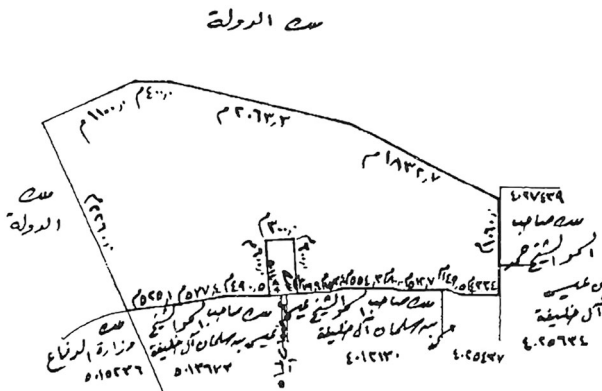 ملك الدولة
م٤٠٠,٠
م١١٠٠,٠
م٢٠٦٣,٢
م١٨٣٢,٧
ملك
الدولة
م٢٢٦٠,٠
م١٠٦٠,٠
٤٠٢٧٤٣٩
ملك صاحب
السمو الشيخ حمد
بن عيسى
آل خليفة
٤٠٢٥٦٣٤
م٣٠٠,٠
م٥٢٥,١
م٥٧٧,٤
م٤٩٠,٥
ملك
وزارة الدفاع
٥٠١٥٢٣٦
ملك صاحب السمو الشيخ
عيسى بن سلمان آل خليفة
٥٠١٣٦٧٢
ملك صاحب السمو الشيخ عيسى
بن سلمان آل خليفة
٤٠١٢١٣٠
٤٠٢٥٤٣٧